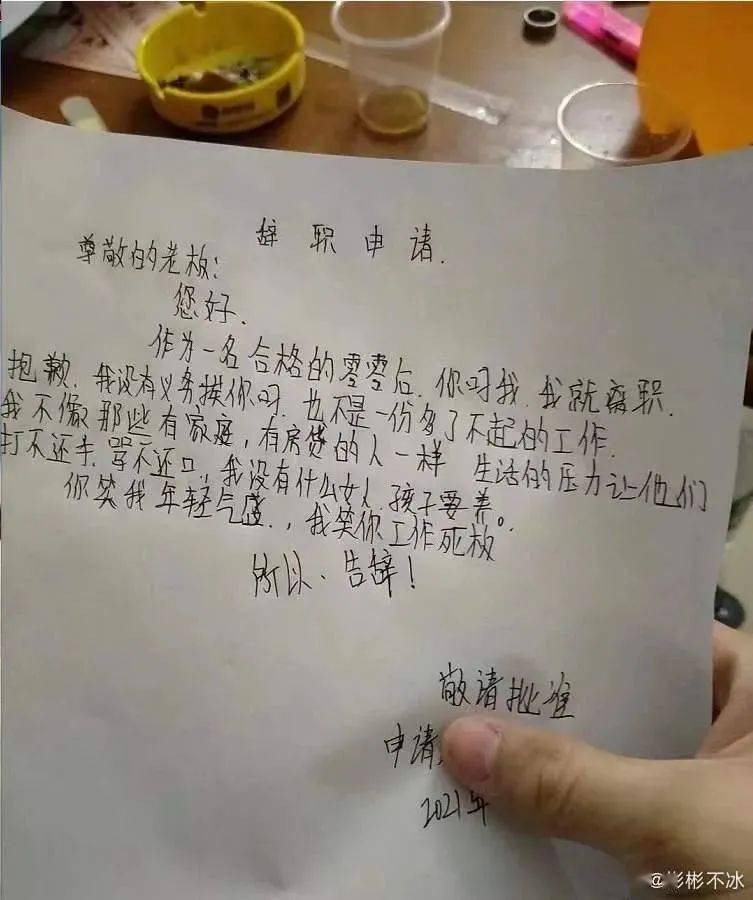 辞职申请.
尊敬的老板：
您好.
作为一名合格的零零后.你吗我.我就离职.
抱歉.我没有义务挨你吗.也不是一份多了不起的工作.
我不像那些有家庭，有房贷的人一样 生活的压力让他们
打不还手.骂不还口，我没有什么女人.孩子要养。
你笑我年轻气盛.，我笑你工作死板
所以、告辞！
敬请批准
申请
2021年
@彬彬不冰